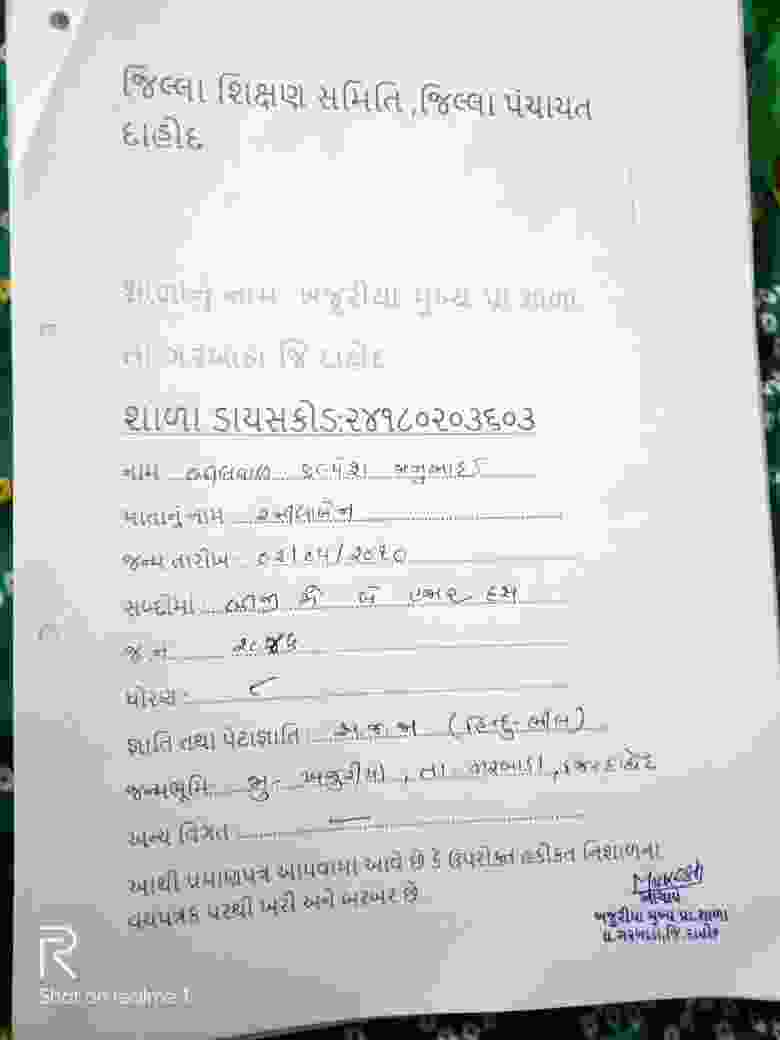 જિલ્લા શિક્ષણ સમિતિ ,જિલ્લા પંચાયત
દાહોદ
શાળાનું નામ ખજૂરીયા મુખ્ય પ્રા શાળા
તા ગરબાડા જિ દાહોદ
શાળા ડાયસકોડ:૨૪૧૮૦૨૦૩૬૦૩
નામ
માતાનું નામ
જન્મ તારીખ ૦૨/૦૫/૨૦૧૦
સબ્દોમાં બીજી મે બે હજાર દસ
જ.ન
ધોરણ- ૮
જ્ઞાતિ તથા પેટાજ્ઞાતિ અ.જ.જા (હિન્દુ-ભીલ)
જન્મભૂમિ- મુ- ખજુરીયા, તા ગરબાડા,
અન્ય વિગત
આથી પ્રમાણપત્ર આપવામા આવે છે કે ઉપરોક્ત હકીકત નિશાળના
વયપત્રક પરથી ખરી અને બરબર છે
આચાર્ય
ખજુરીયા મુખ્ય પ્રા.શાળા
તા.ગરબાડા,જિ.દાહોદ
R
Shot on realme 1